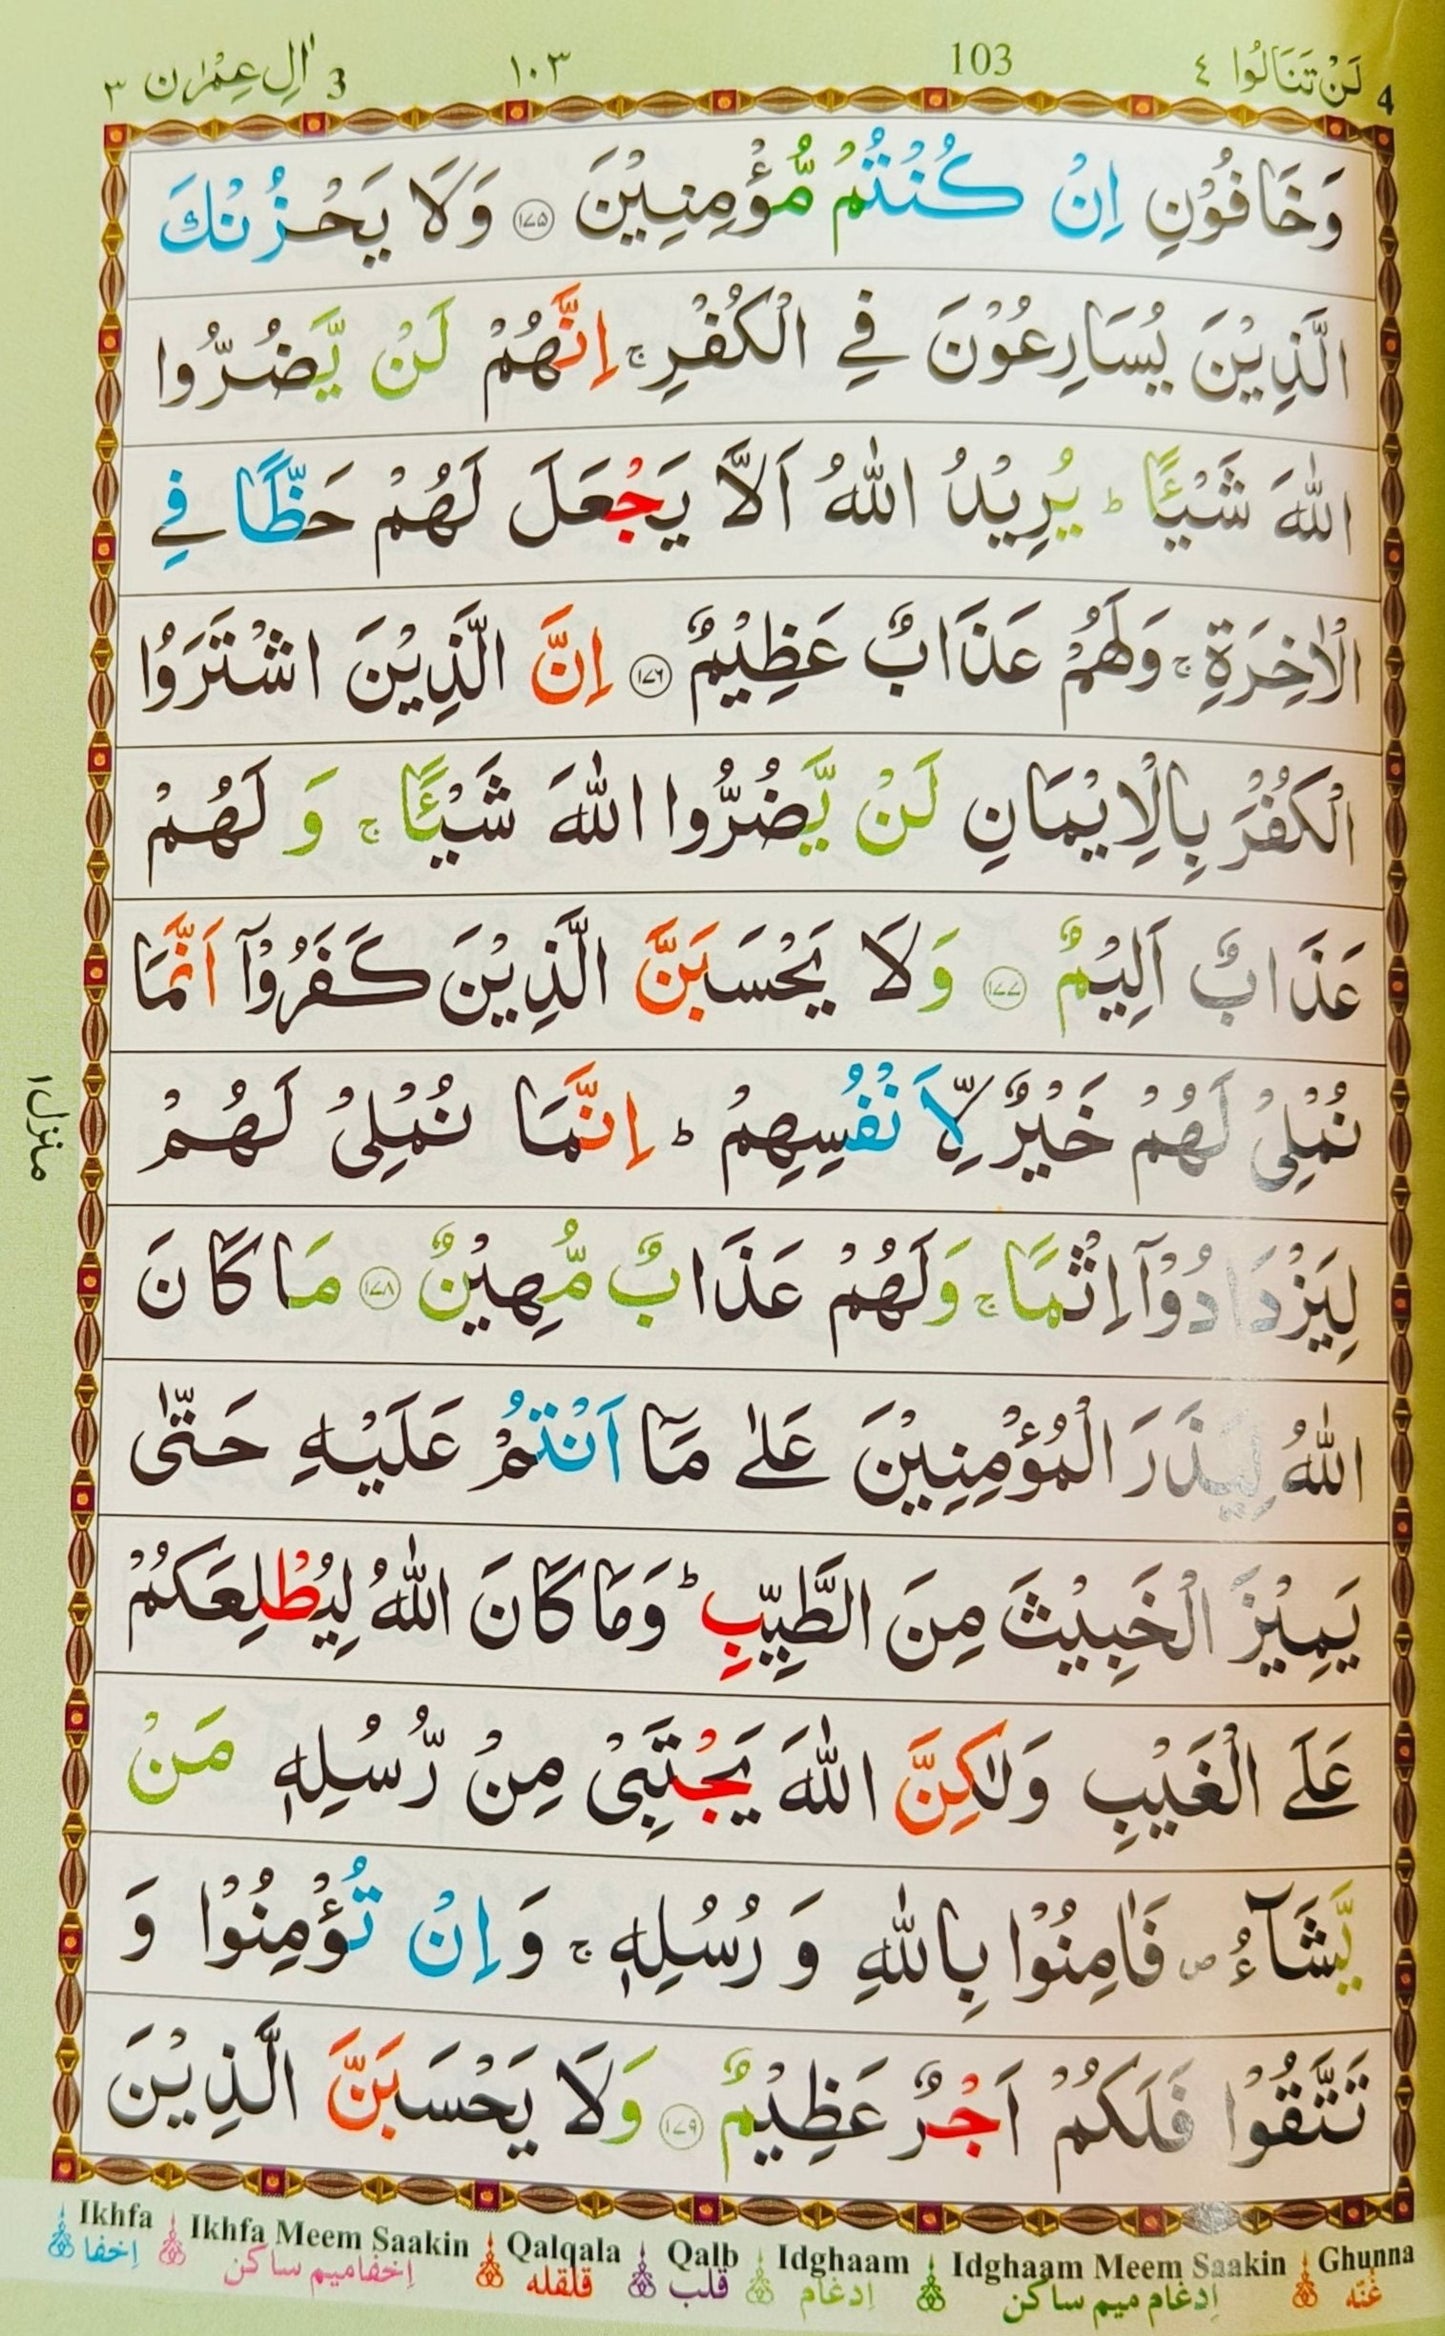 4 لَنْ تَنَالُوا ٤ 103 ١٠٣ 3 اٰلِ عِمْرٰن ٣
وَخَافُوْنِ اِنْ كُنْتُمْ مُّؤْمِنِيْنَ ﴿١٧٥﴾ وَلَا يَحْزُنْكَ
الَّذِيْنَ يُسَارِعُوْنَ فِي الْكُفْرِ ۚ اِنَّهُمْ لَنْ يَّضُرُّوا
اللّٰهَ شَيْـًٔا ؕ يُرِيْدُ اللّٰهُ اَلَّا يَجْعَلَ لَهُمْ حَظًّا فِي
الْاٰخِرَةِ ۚ وَلَهُمْ عَذَابٌ عَظِيْمٌ ﴿١٧٦﴾ اِنَّ الَّذِيْنَ اشْتَرَوُا
الْكُفْرَ بِالْاِيْمَانِ لَنْ يَّضُرُّوا اللّٰهَ شَيْـًٔا ۚ وَ لَهُمْ
عَذَابٌ اَلِيْمٌ ﴿١٧٧﴾ وَلَا يَحْسَبَنَّ الَّذِيْنَ كَفَرُوْۤا اَنَّمَا
نُمْلِيْ لَهُمْ خَيْرٌ لِّاَنْفُسِهِمْ ؕ اِنَّمَا نُمْلِيْ لَهُمْ
لِيَزْدَادُوْۤا اِثْمًا ۚ وَلَهُمْ عَذَابٌ مُّهِيْنٌ ﴿١٧٨﴾ مَا كَانَ
اللّٰهُ لِيَذَرَ الْمُؤْمِنِيْنَ عَلٰى مَاۤ اَنْتُمْ عَلَيْهِ حَتّٰى
يَمِيْزَ الْخَبِيْثَ مِنَ الطَّيِّبِ ؕ وَمَا كَانَ اللّٰهُ لِيُطْلِعَكُمْ
عَلَى الْغَيْبِ وَلٰكِنَّ اللّٰهَ يَجْتَبِيْ مِنْ رُّسُلِهٖ مَنْ
يَّشَآءُ ۪ فَاٰمِنُوْا بِاللّٰهِ وَ رُسُلِهٖ ۚ وَاِنْ تُؤْمِنُوْا وَ
تَتَّقُوْا فَلَكُمْ اَجْرٌ عَظِيْمٌ ﴿١٧٩﴾ وَلَا يَحْسَبَنَّ الَّذِيْنَ
منزل ١
Ikhfa Ikhfa Meem Saakin Qalqala Qalb Idghaam Idghaam Meem Saakin Ghunna
اِخفا اِخفامیم ساکن قلقله قلب اِدغام اِدغام میم ساکن غُنّه